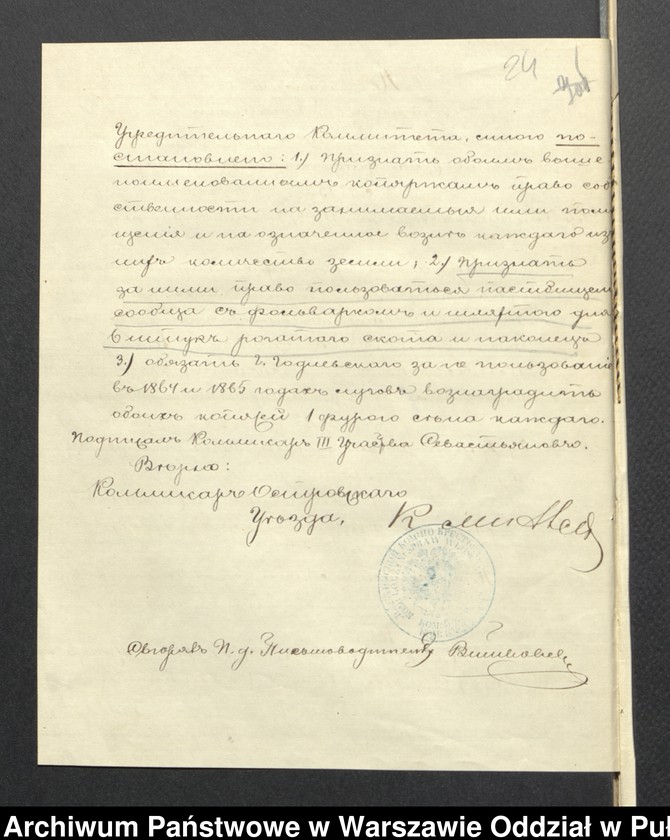 24
Учредительнаго Комитета, симъ по-
становлено: 1.) Признать обоимъ выше
поименованнымъ копяржамъ право соб
ственности на занимаемыя ими поме
щенія и на означенное возлѣ каждаго из
нихъ количество земли; 2.) Признать
за ними право пользоваться пастбищем
сообща съ фольваркомъ и шляхтою для
6 штукъ рогатаго скота и наконецъ
3.) обязать Г. Годлевскаго за не пользованіе
въ 1864 и 1865 годахъ луговъ вознаградить
обоихъ копярей 1 фурою сѣна каждаго.
Подписалъ Комисаръ III Участка Севастьяновъ.
Вѣрно:
Коммисаръ Островскаго
Уѣзда,
И. д. Письмоводителя
Archiwum Państwowe w Warszawie Oddział w Pu